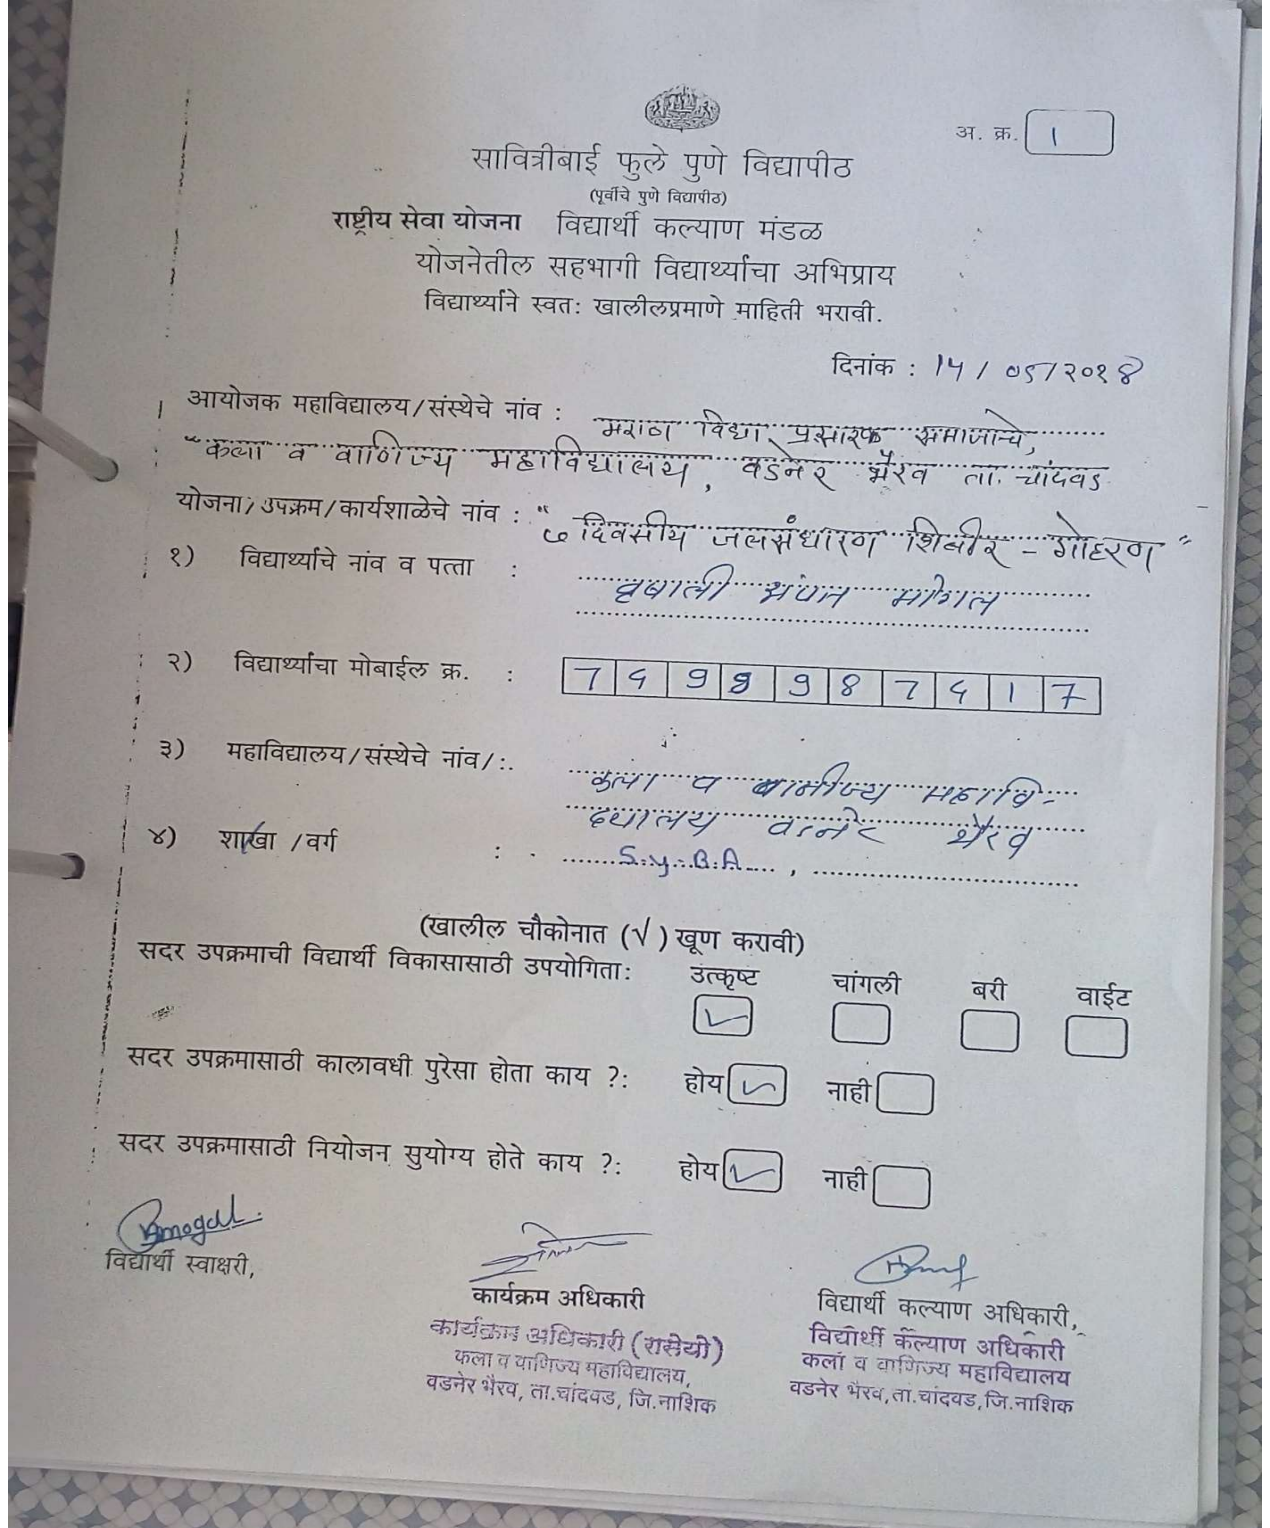 अ. क्र. 1
सावित्रीबाई फुले पुणे विद्यापीठ
(पूर्वीचे पुणे विद्यापीठ)
राष्ट्रीय सेवा योजना विद्यार्थी कल्याण मंडळ
योजनेतील सहभागी विद्यार्थ्यांचा अभिप्राय
विद्यार्थ्याने स्वतः खालीलप्रमाणे माहिती भरावी.
दिनांक : 14 / 05 / २०१८
आयोजक महाविद्यालय/संस्थेचे नांव : मराठा विद्या प्रसारक समाजाचे,
"कला व वाणिज्य महाविद्यालय, वडनेर भैरव ता. चांदवड
योजना/उपक्रम/कार्यशाळेचे नांव : "७ दिवसीय जलसंधारण शिबीर - गोहरण"
१) विद्यार्थ्यांचे नांव व पत्ता : वृषाली संपत मोगल
२) विद्यार्थ्यांचा मोबाईल क्र. :
३) महाविद्यालय/संस्थेचे नांव/:. कला व वाणीज्य महावि-
द्यालय वडनेर भैरव
४) शाखा /वर्ग : S.y.B.A. ,
(खालील चौकोनात (√) खूण करावी)
सदर उपक्रमाची विद्यार्थी विकासासाठी उपयोगिता: उत्कृष्ट ✓ चांगली बरी वाईट
सदर उपक्रमासाठी कालावधी पुरेसा होता काय ?: होय ✓ नाही
सदर उपक्रमासाठी नियोजन सुयोग्य होते काय ?: होय ✓ नाही
विद्यार्थी स्वाक्षरी,
कार्यक्रम अधिकारी
विद्यार्थी कल्याण अधिकारी,
कार्यक्रम अधिकारी (रासेयो)
कला व वाणिज्य महाविद्यालय,
वडनेर भैरव, ता.चांदवड, जि.नाशिक
विद्यार्थी कल्याण अधिकारी
कला व वाणिज्य महाविद्यालय
वडनेर भैरव,ता.चांदवड,जि.नाशिक